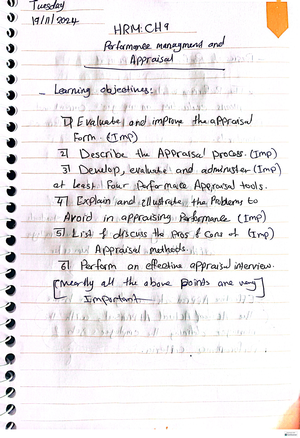 Tuesday
19/11/2024
HRM: CH 9
Performance managment and
Appraisal
– Learning objectives:
1) Evaluate and improve the appraisal
Form. (Imp)
2) Describe the Appraisal process. (Imp)
3) Develop, evaluate and administer (Imp)
at least Four Performace Appraisal tools.
4) Explain and illustrate the Problems to
Avoid in appraising Performance (Imp)
5) List & discuss the Pros & Cons of (Imp)
Appraisal methods.
6) Perform an effective appraisal interview.
[Nearly all the above points are very]
Important